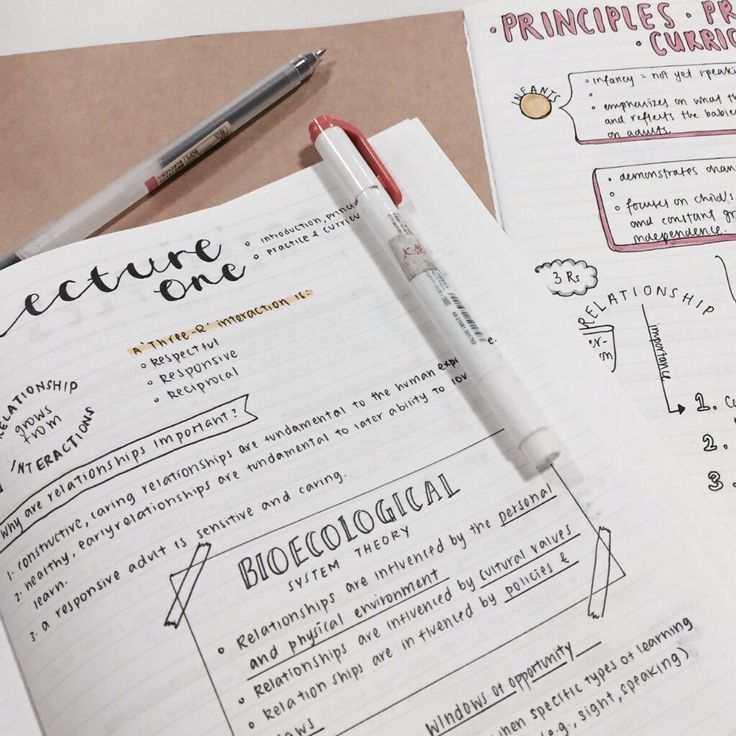 ecture
one
• introduction,
• practice &
A "Three-R" interaction is:
• Respectful
• Responsive
• Reciprocal
RELATIONSHIP
grows
from
INTERACTIONS
Why are relationships important?
1. constructive, caring relationships are fundamental to the human
2. healthy, early relationships are fundamental to later ability to
learn.
3. a responsive adult is sensitive and caring.
BIOECOLOGICAL
SYSTEM THEORY
• Relationships are influenced by the personal
and physical environment
• Relationships are influenced by cultural values
• Relationships are influenced by policies &
laws
Windows of opportunity
when specific types of learning
(e.g., sight, speaking)
• PRINCIPLES •
•
INFANTS
• infancy = not yet
• emphasizes on what
and reflects the
on adults.
• demonstrates
• focuses on child's
and constant
independence.
3 Rs
RELATIONSHIP
importance
1.
2.
3.